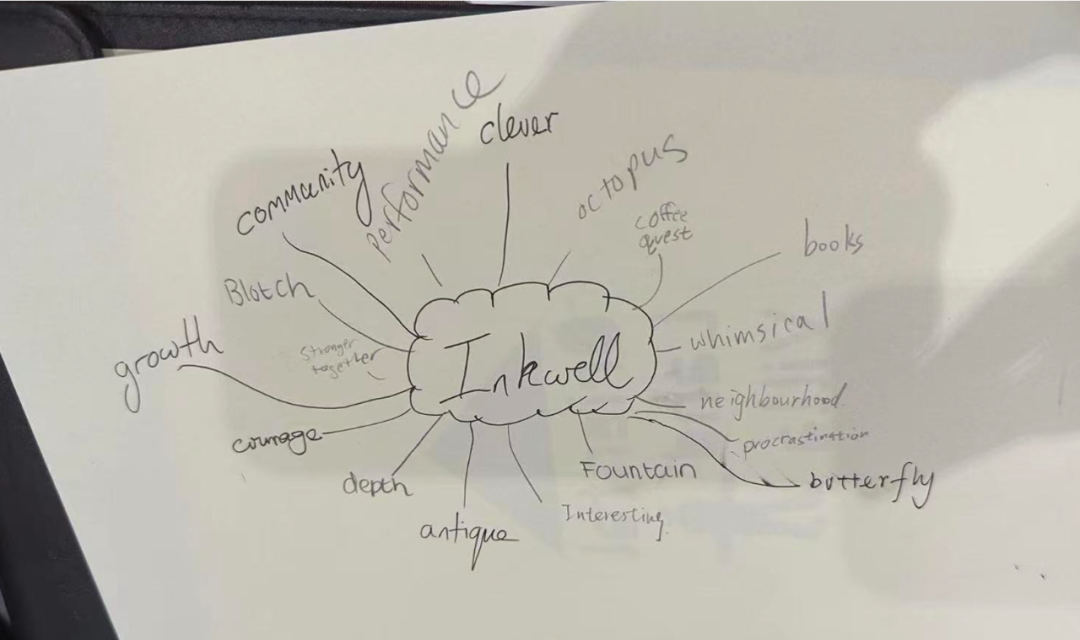 performance
clever
community
octopus
coffee
quest
books
Blotch
whimsical
growth
Stronger
together
Inkwell
neighbourhood
courage
procrastination
Fountain
depth
butterfly
Interesting
antique